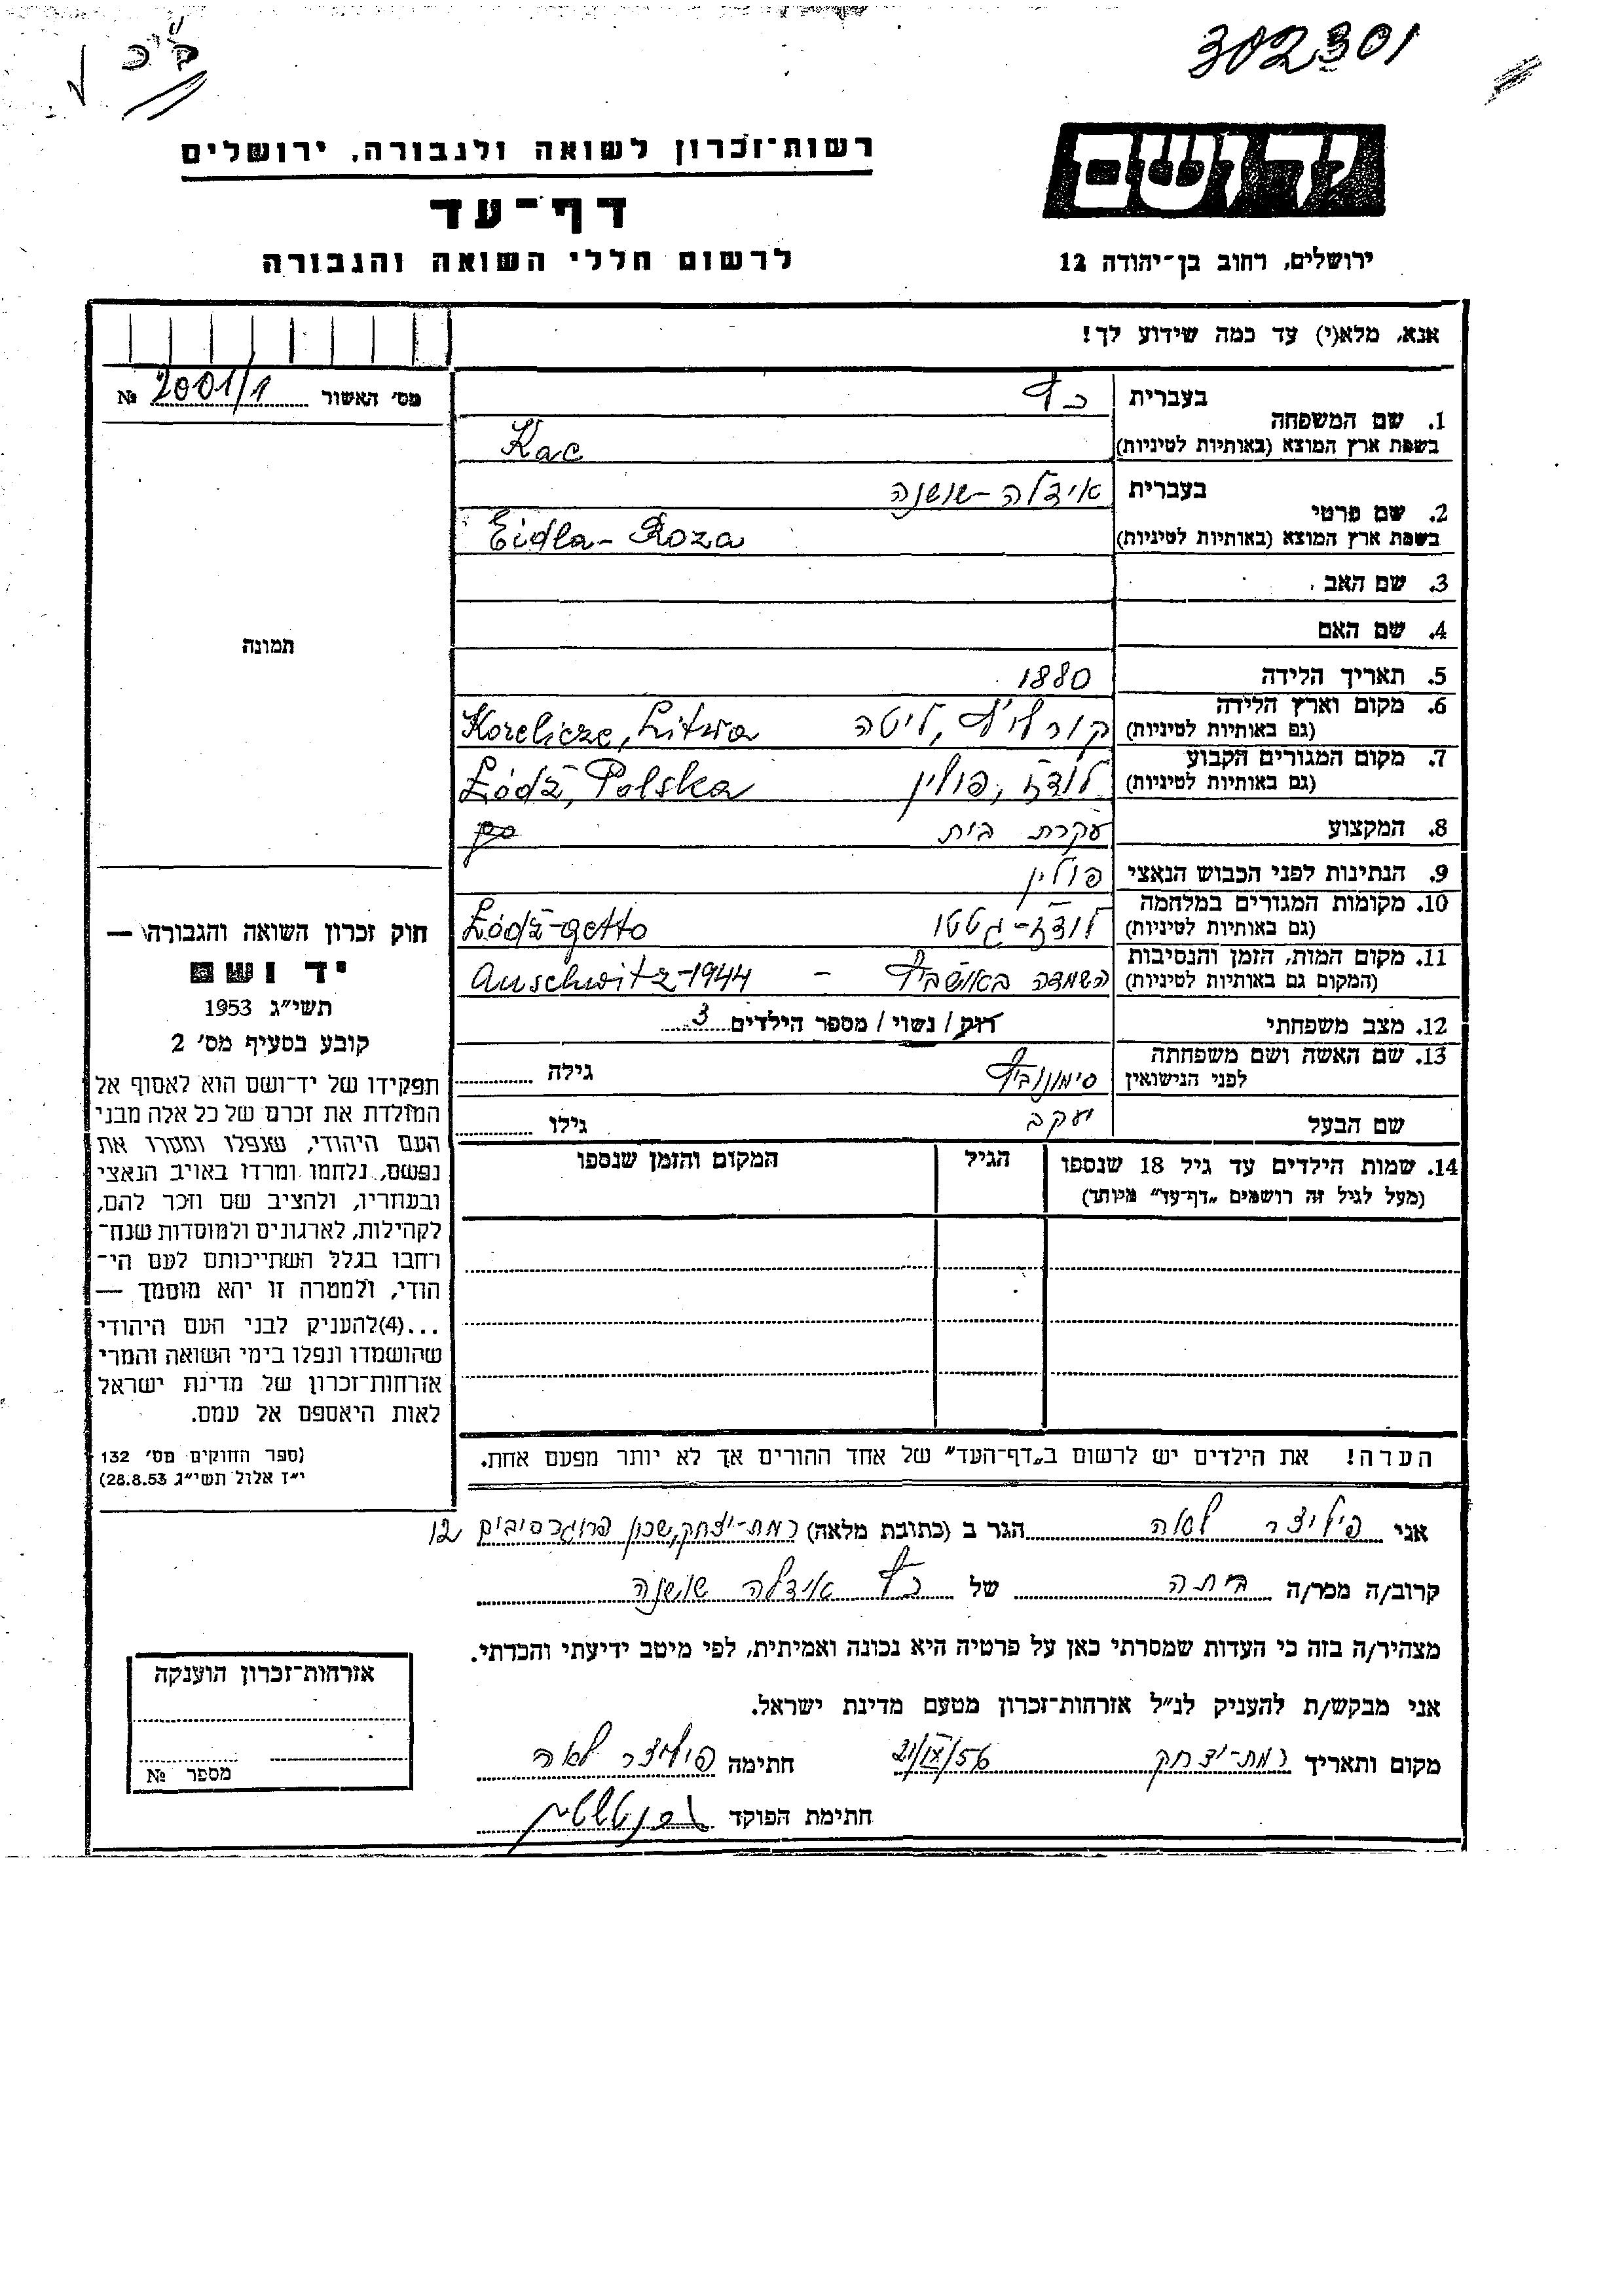 302301
כ"ץ
יד ושם
ירושלים, רחוב בן-יהודה 12
רשות-זכרון לשואה ולגבורה, ירושלים
דף-עד
לרשום חללי השואה והגבורה
אנא, מלא(י) עד כמה שידוע לך!
מס' האשור 2001/1 №
תמונה
1. שם המשפחה
בעברית כץ
בשפת ארץ המוצא (באותיות לטיניות) Kac
2. שם פרטי
בעברית אידלה-שושנה
בשפת ארץ המוצא (באותיות לטיניות) Eidla-Roza
3. שם האב
4. שם האם
5. תאריך הלידה 1880
6. מקום וארץ הלידה
(גם באותיות לטיניות) קורליץ, ליטה Korelicze, Litwa
7. מקום המגורים הקבוע
(גם באותיות לטיניות) לודז, פולין Łódź, Polska
8. המקצוע עקרת בית
9. הנתינות לפני הכבוש הנאצי פולין
10. מקומות המגורים במלחמה
(גם באותיות לטיניות) לודז-גטטו Łódź-getto
11. מקום המות, הזמן והנסיבות
(המקום גם באותיות לטיניות) השמדה באושביץ - Auschwitz-1944
12. מצב משפחתי רוק / נשוי / מספר הילדים 3
13. שם האשה ושם משפחתה
לפני הנישואין סימונוביץ גילה
שם הבעל יעקב גילו
14. שמות הילדים עד גיל 18 שנספו הגיל המקום והזמן שנספו
(מעל לגיל זה רושמים "דף-עד" מיוחד)
הערה! את הילדים יש לרשום ב"דף-העד" של אחד ההורים אך לא יותר מפעם אחת.
חוק זכרון השואה והגבורה —
יד ושם
תשי"ג 1953
קובע בסעיף מס' 2
תפקידו של יד-ושם הוא לאסוף אל
המולדת את זכרם של כל אלה מבני
העם היהודי, שנפלו ומסרו את
נפשם, נלחמו ומרדו באויב הנאצי
ובעוזריו, ולהציב שם וזכר להם,
לקהילות, לארגונים ולמוסדות שנח-
רבו בגלל השתייכותם לעם הי-
הודי, ולמטרה זו יהא מוסמך —
...(4)להעניק לבני העם היהודי
שהושמדו ונפלו בימי השואה והמרי
אזרחות-זכרון של מדינת ישראל
לאות היאספם אל עמם.
(ספר החוקים מס' 132
י"ז אלול תשי"ג 28.8.53)
אני פיליצר לאה הגר ב (כתובת מלאה) רמת-יצחק, שכון פרוגרסיבים 12
קרוב/ה מכר/ה ביתה של כץ אידלה שושנה
מצהיר/ה בזה כי העדות שמסרתי כאן על פרטיה היא נכונה ואמיתית, לפי מיטב ידיעתי והכרתי.
אני מבקש/ת להעניק לנ"ל אזרחות-זכרון מטעם מדינת ישראל.
מקום ותאריך רמת-יצחק 21/IX/56 חתימה פיליצר לאה
חתימת הפוקד
אזרחות-זכרון הוענקה
מספר №